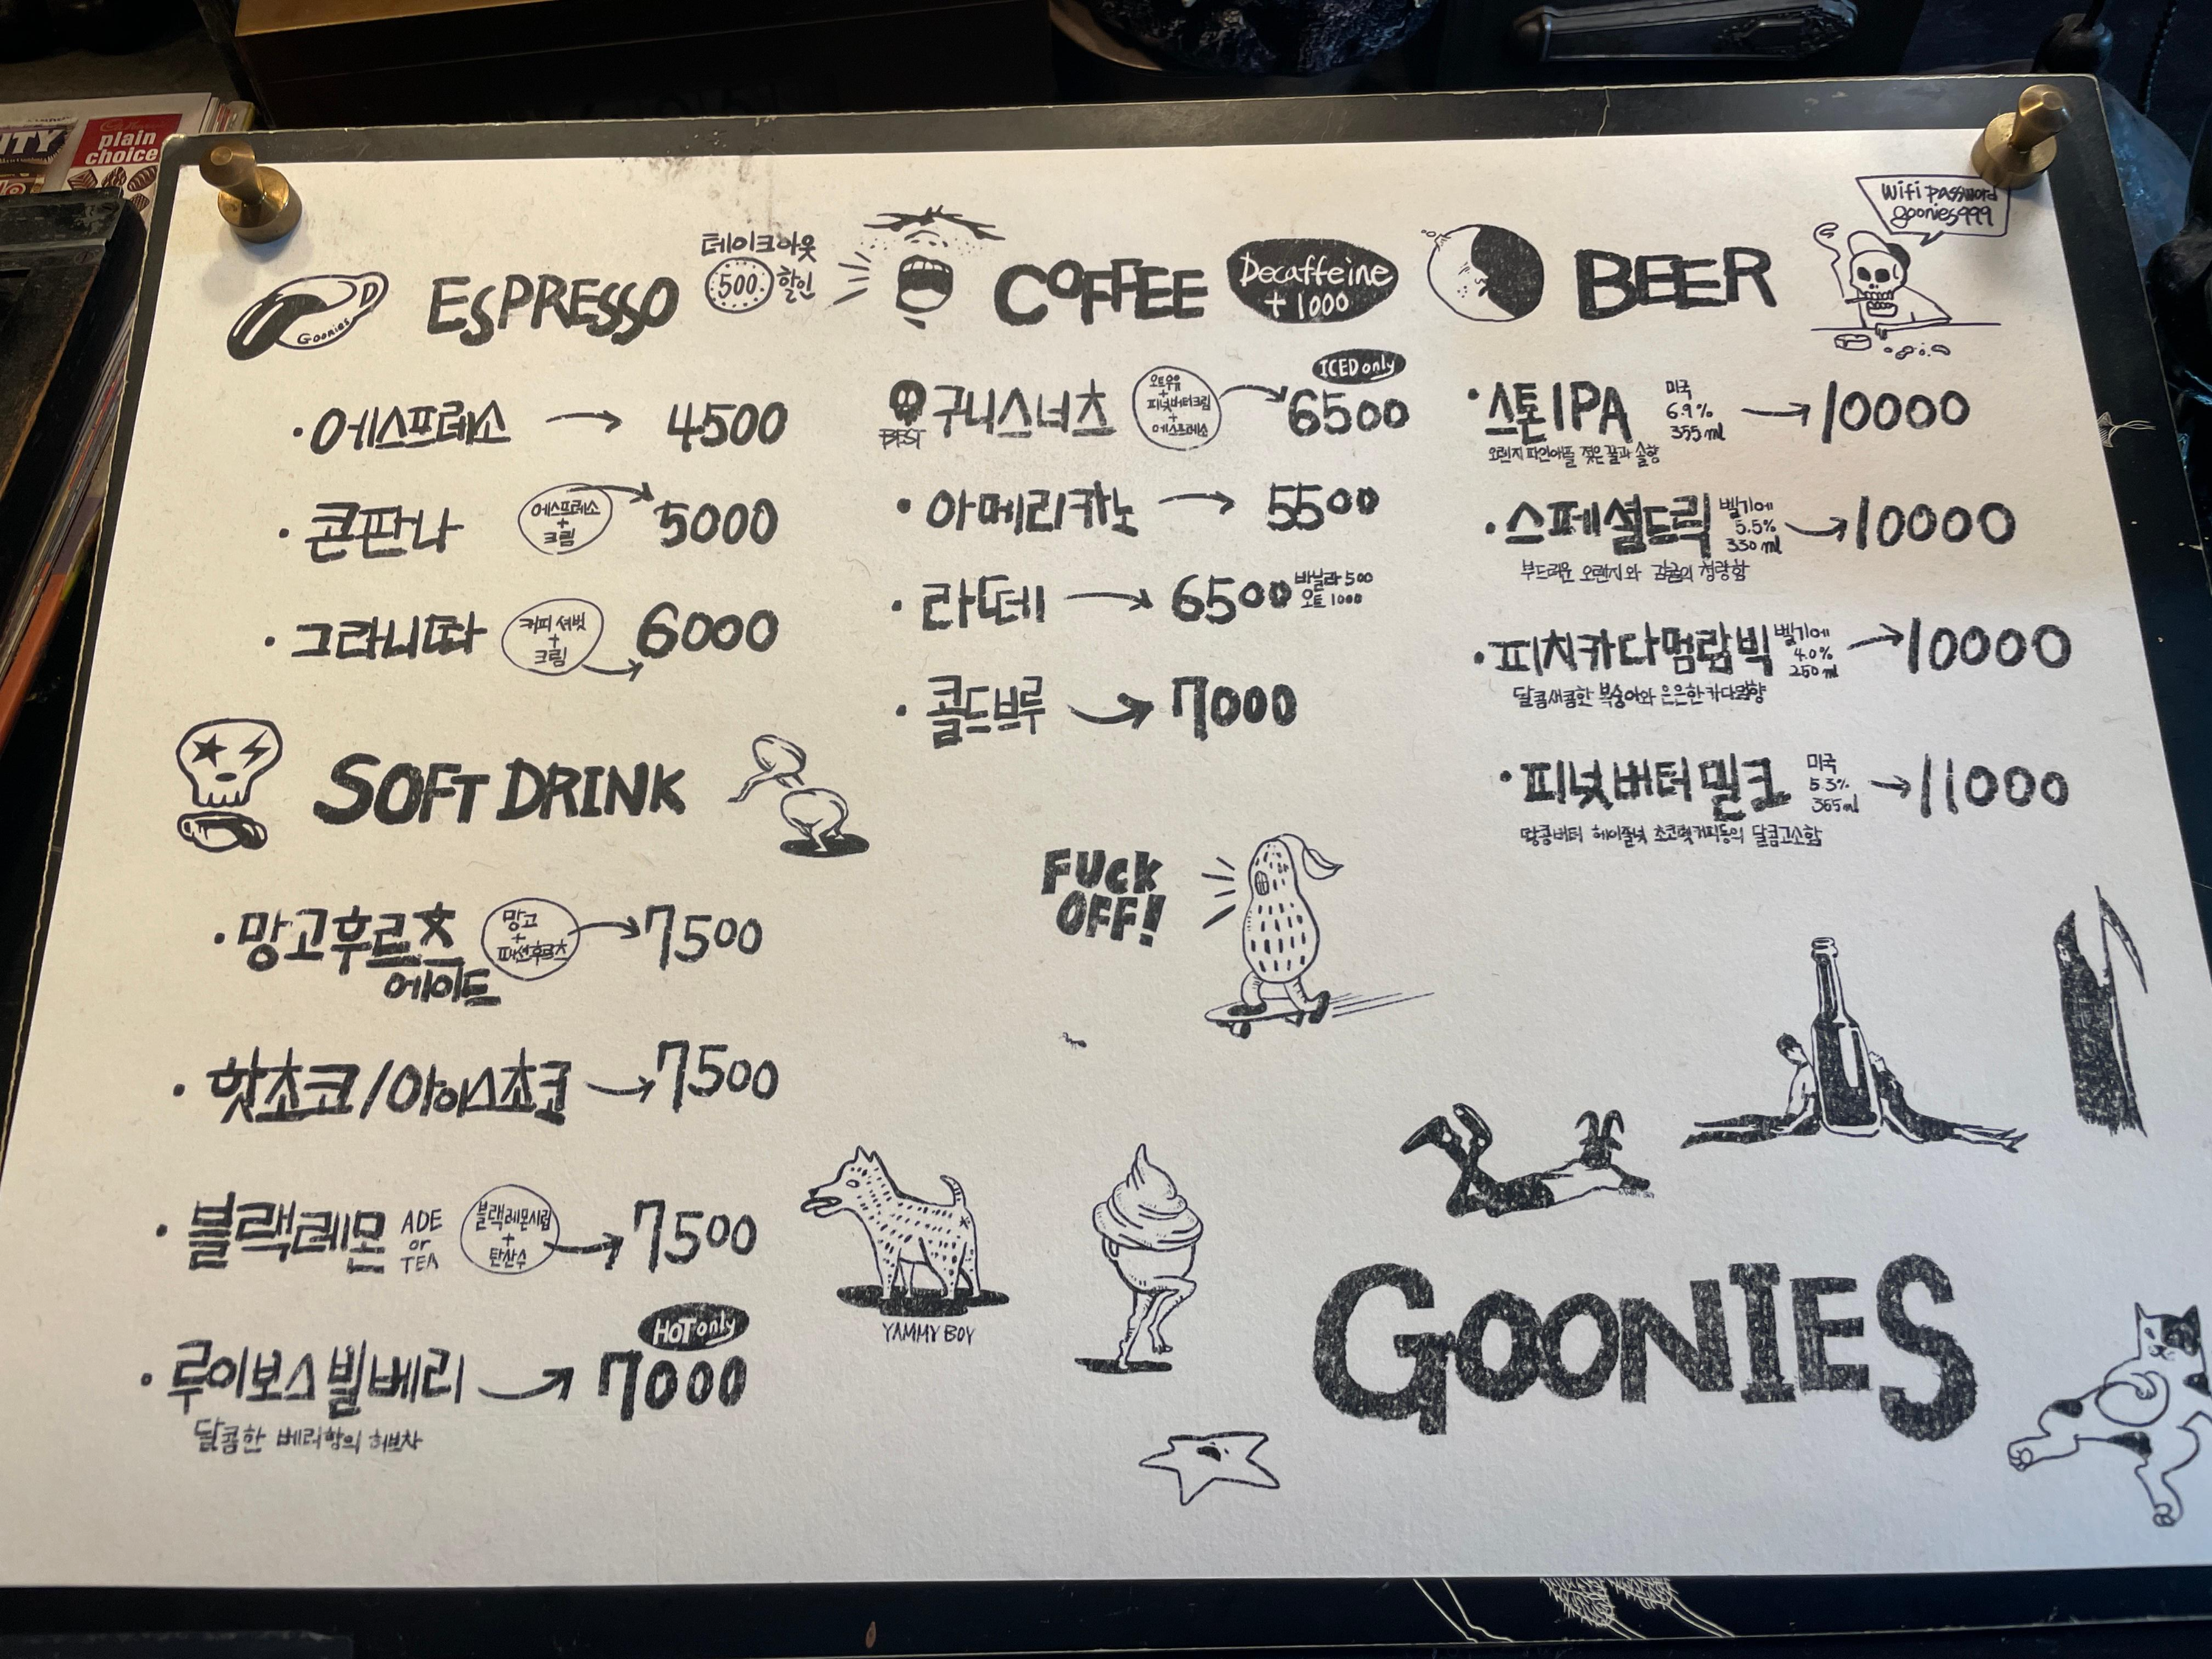 NITY
plain
choice
Goonies
ESPRESSO
테이크아웃
500 할인
·에스프레소 → 4500
·콘판나 에스프레소 + 크림 → 5000
·그라니따 커피 셔벗 + 크림 → 6000
COFFEE
Decaffeine
+1000
BEST 구니스너츠 오트우유 + 피넛버터크림 + 에스프레소 → ICED only 6500
·아메리카노 → 5500
·라떼 → 6500 바닐라 500 오트 1000
·콜드브루 → 7000
BEER
Wifi password
goonies999
·스톤IPA 미국 6.9% 355ml → 10000
오렌지 파인애플 젖은 풀과 솔향
·스페셜드릭 벨기에 5.5% 330ml → 10000
부드러운 오렌지와 감귤의 청량함
·피치카다멈람빅 벨기에 4.0% 250ml → 10000
달콤새콤한 복숭아와 은은한 카다멈향
·피넛버터밀크 미국 5.3% 355ml → 11000
땅콩버터 헤이즐넛 초코렛 커피등의 달콤고소함
SOFT DRINK
·망고후르츠 에이드 망고 + 패션후르츠 → 7500
·핫초코/아이스초코 → 7500
·블랙레몬 ADE or TEA 블랙레몬시럽 + 탄산수 → 7500
·루이보스빌베리 → HOT only 7000
달콤한 베리향의 허브차
FUCK
OFF!
YAMMY BOY
GOONIES